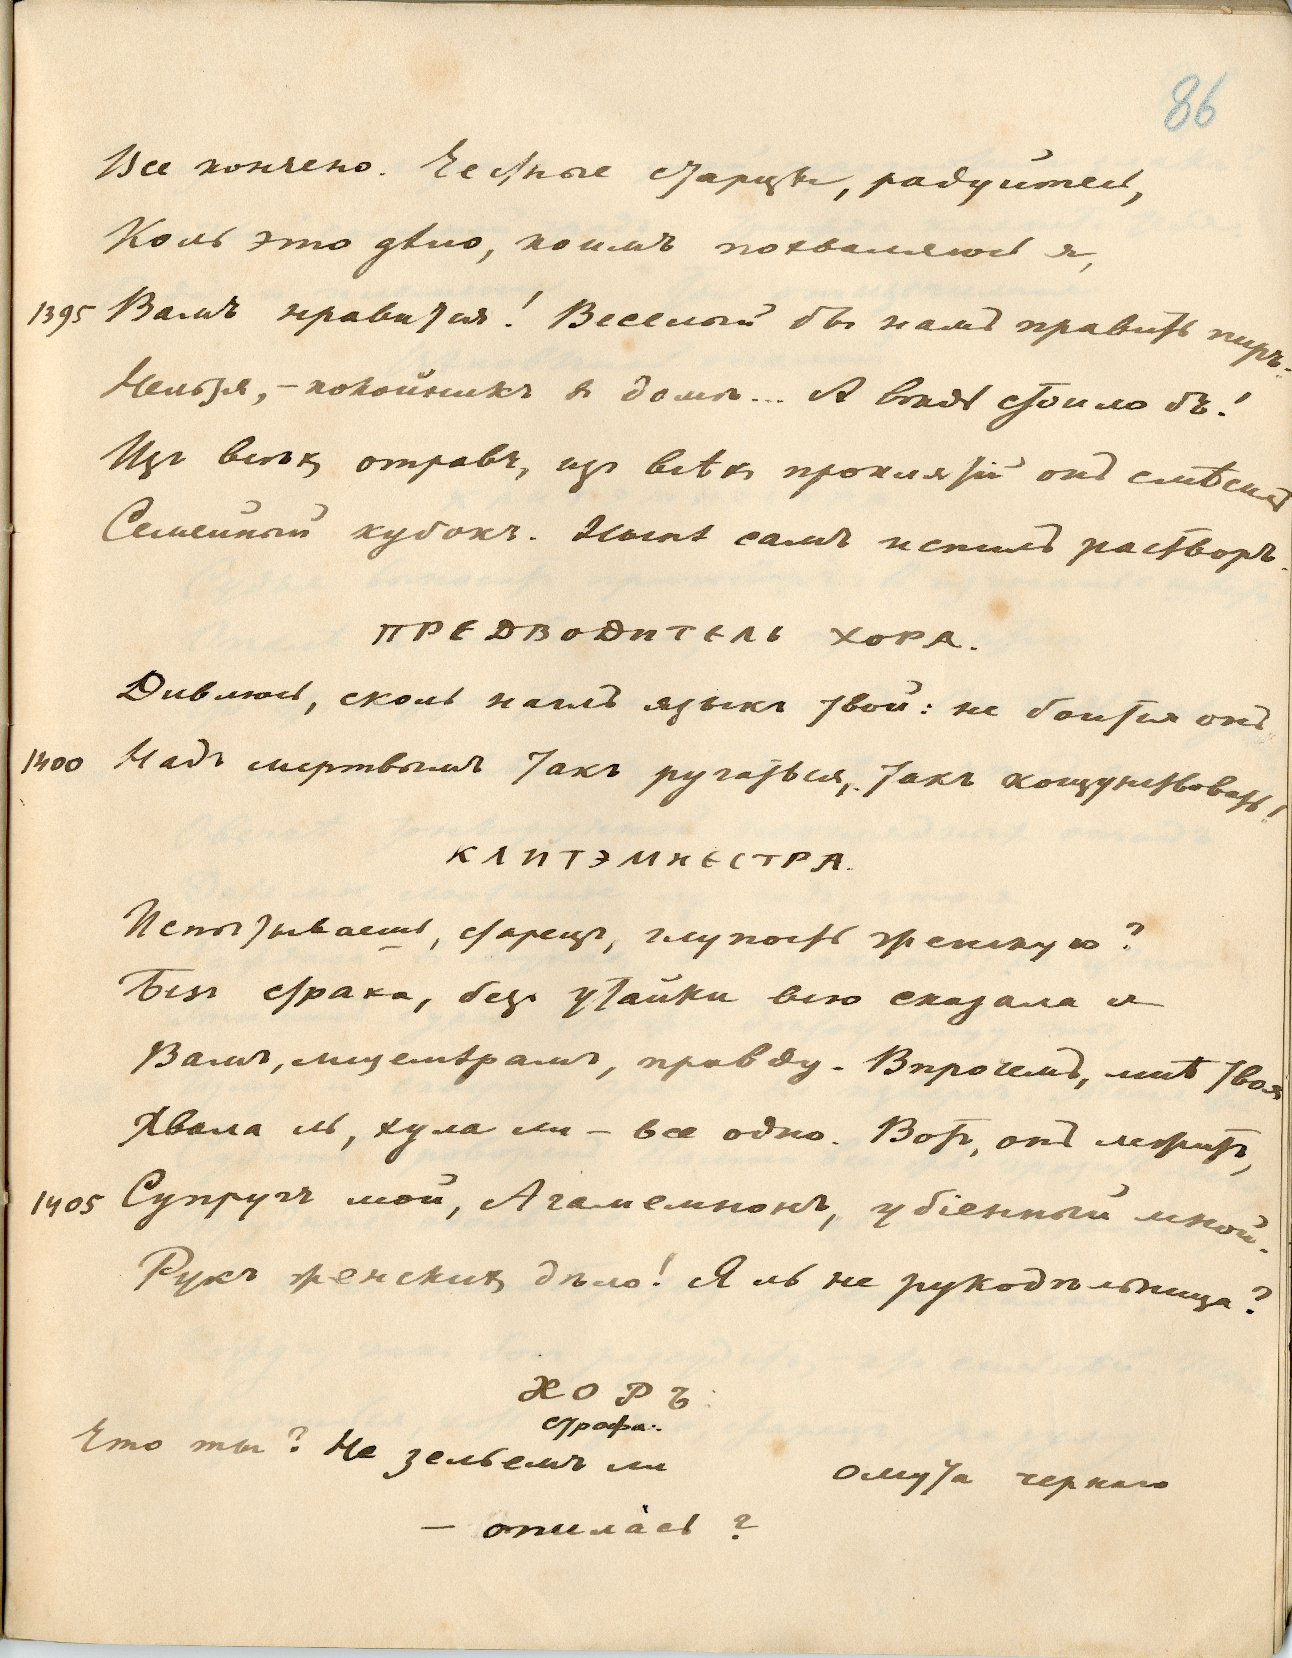 86
Все кончено. Честные старцы, радуйтесь,
Коль это дѣло, коимъ похваляюсь я,
1395 Вамъ нравится! Веселый бы намъ править пиръ.
Нельзя, – покойникъ въ домѣ... А вѣдь стоило бъ!
Изъ всѣхъ отравъ, изъ всѣхъ проклятій онъ смѣсилъ
Семейный кубокъ. Нынѣ самъ испилъ растворъ.
ПРЕДВОДИТЕЛЬ ХОРА.
Дивлюсь, сколь наглъ языкъ твой: не боится онъ
1400 Надъ мертвымъ такъ ругаться, такъ кощунствовать!
КЛИТЭМНЕСТРА.
Испытываешь, старецъ, глупость женскую?
Безъ страха, безъ утайки всю сказала я
Вамъ, лицемѣрамъ, правду. Впрочемъ, мнѣ твоя
Хвала ль, хула ли – все одно. Вотъ, онъ лежитъ,
1405 Супругъ мой, Агамемнонъ, убіенный мной.
Рукъ женскихъ дѣло! Я ль не рукодѣльница?
ХОРЪ:
строфа:
Что ты? Не зельемъ ли омута чернаго
– опила́сь?